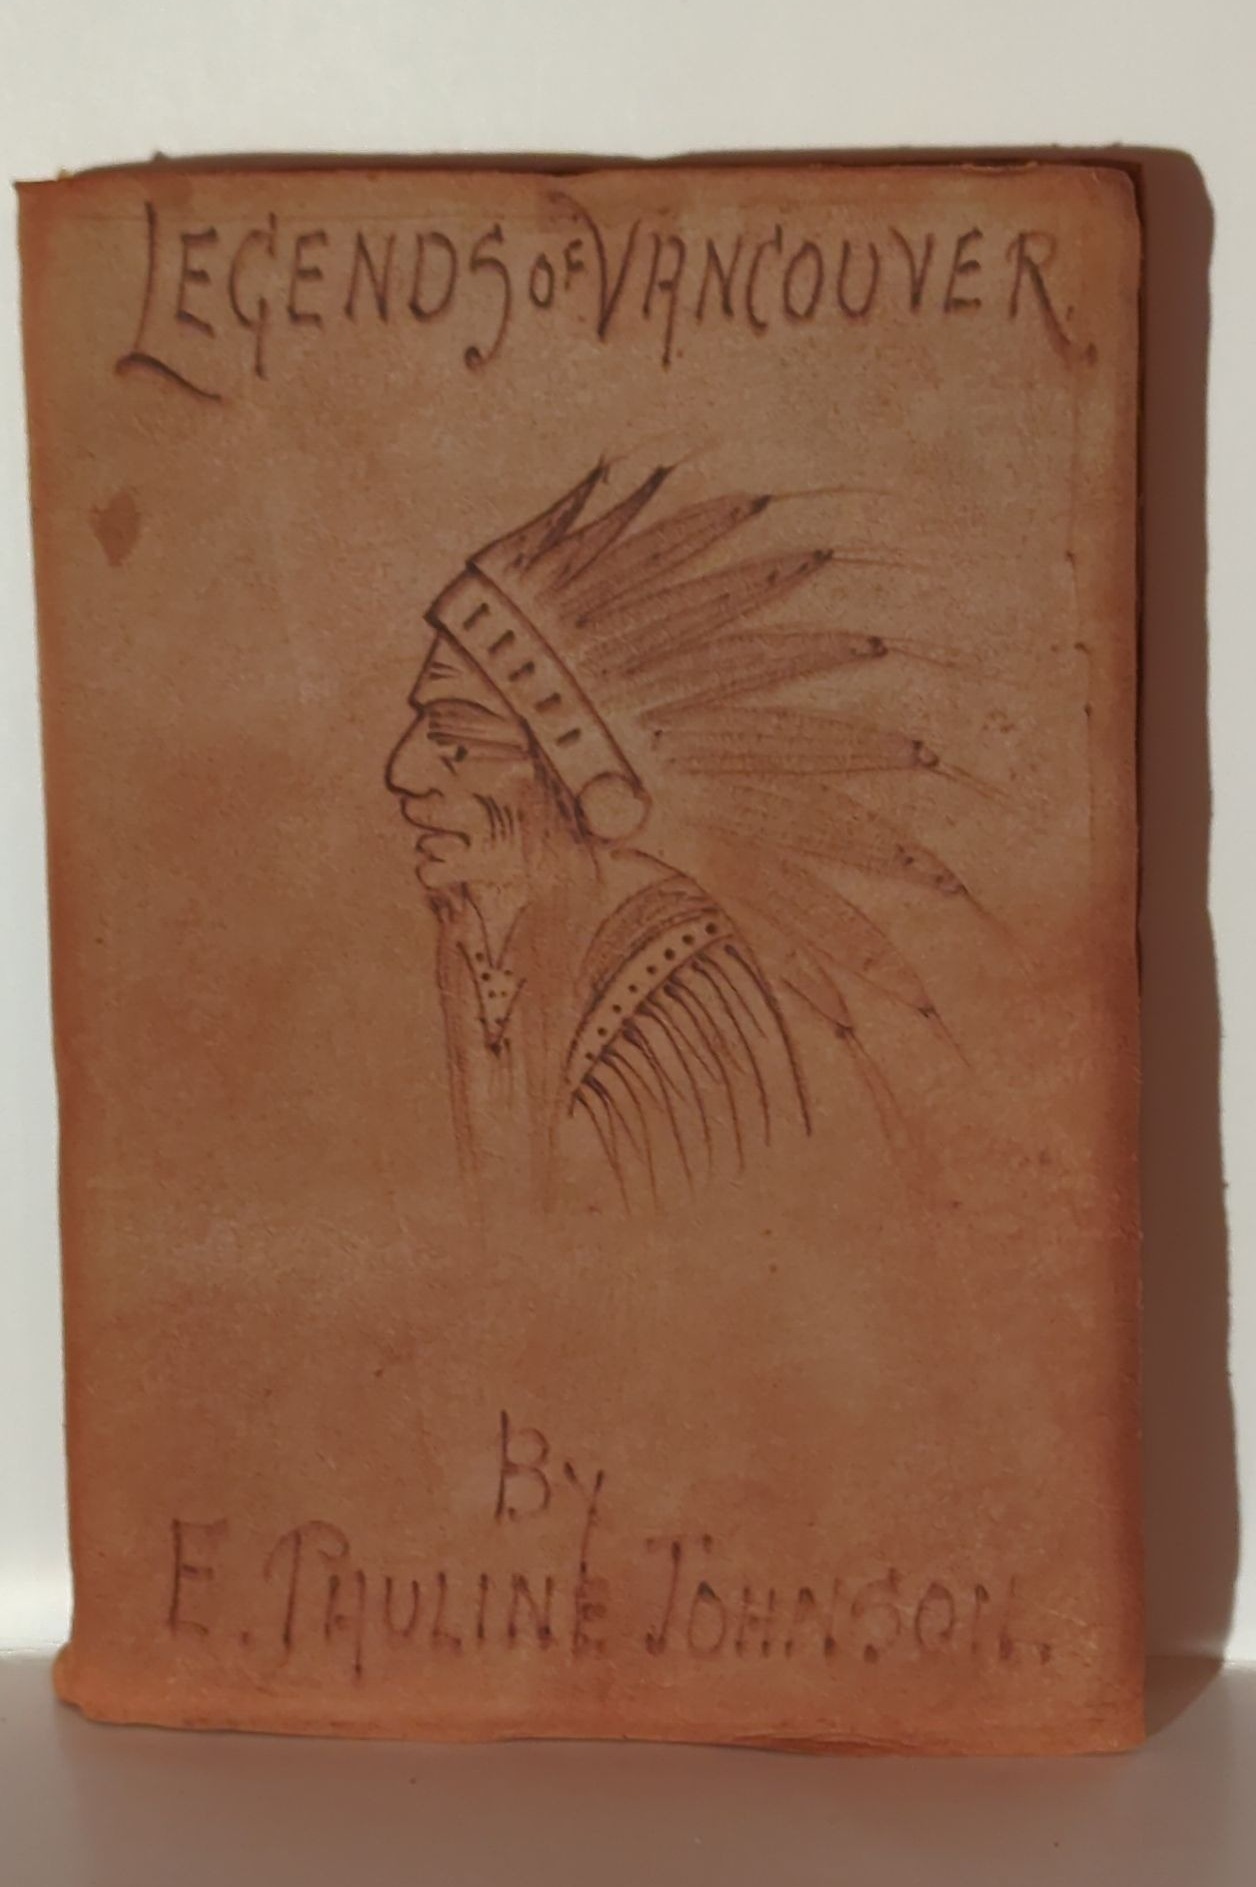 LEGENDS OF VANCOUVER.
By
E. PAULINE JOHNSON.